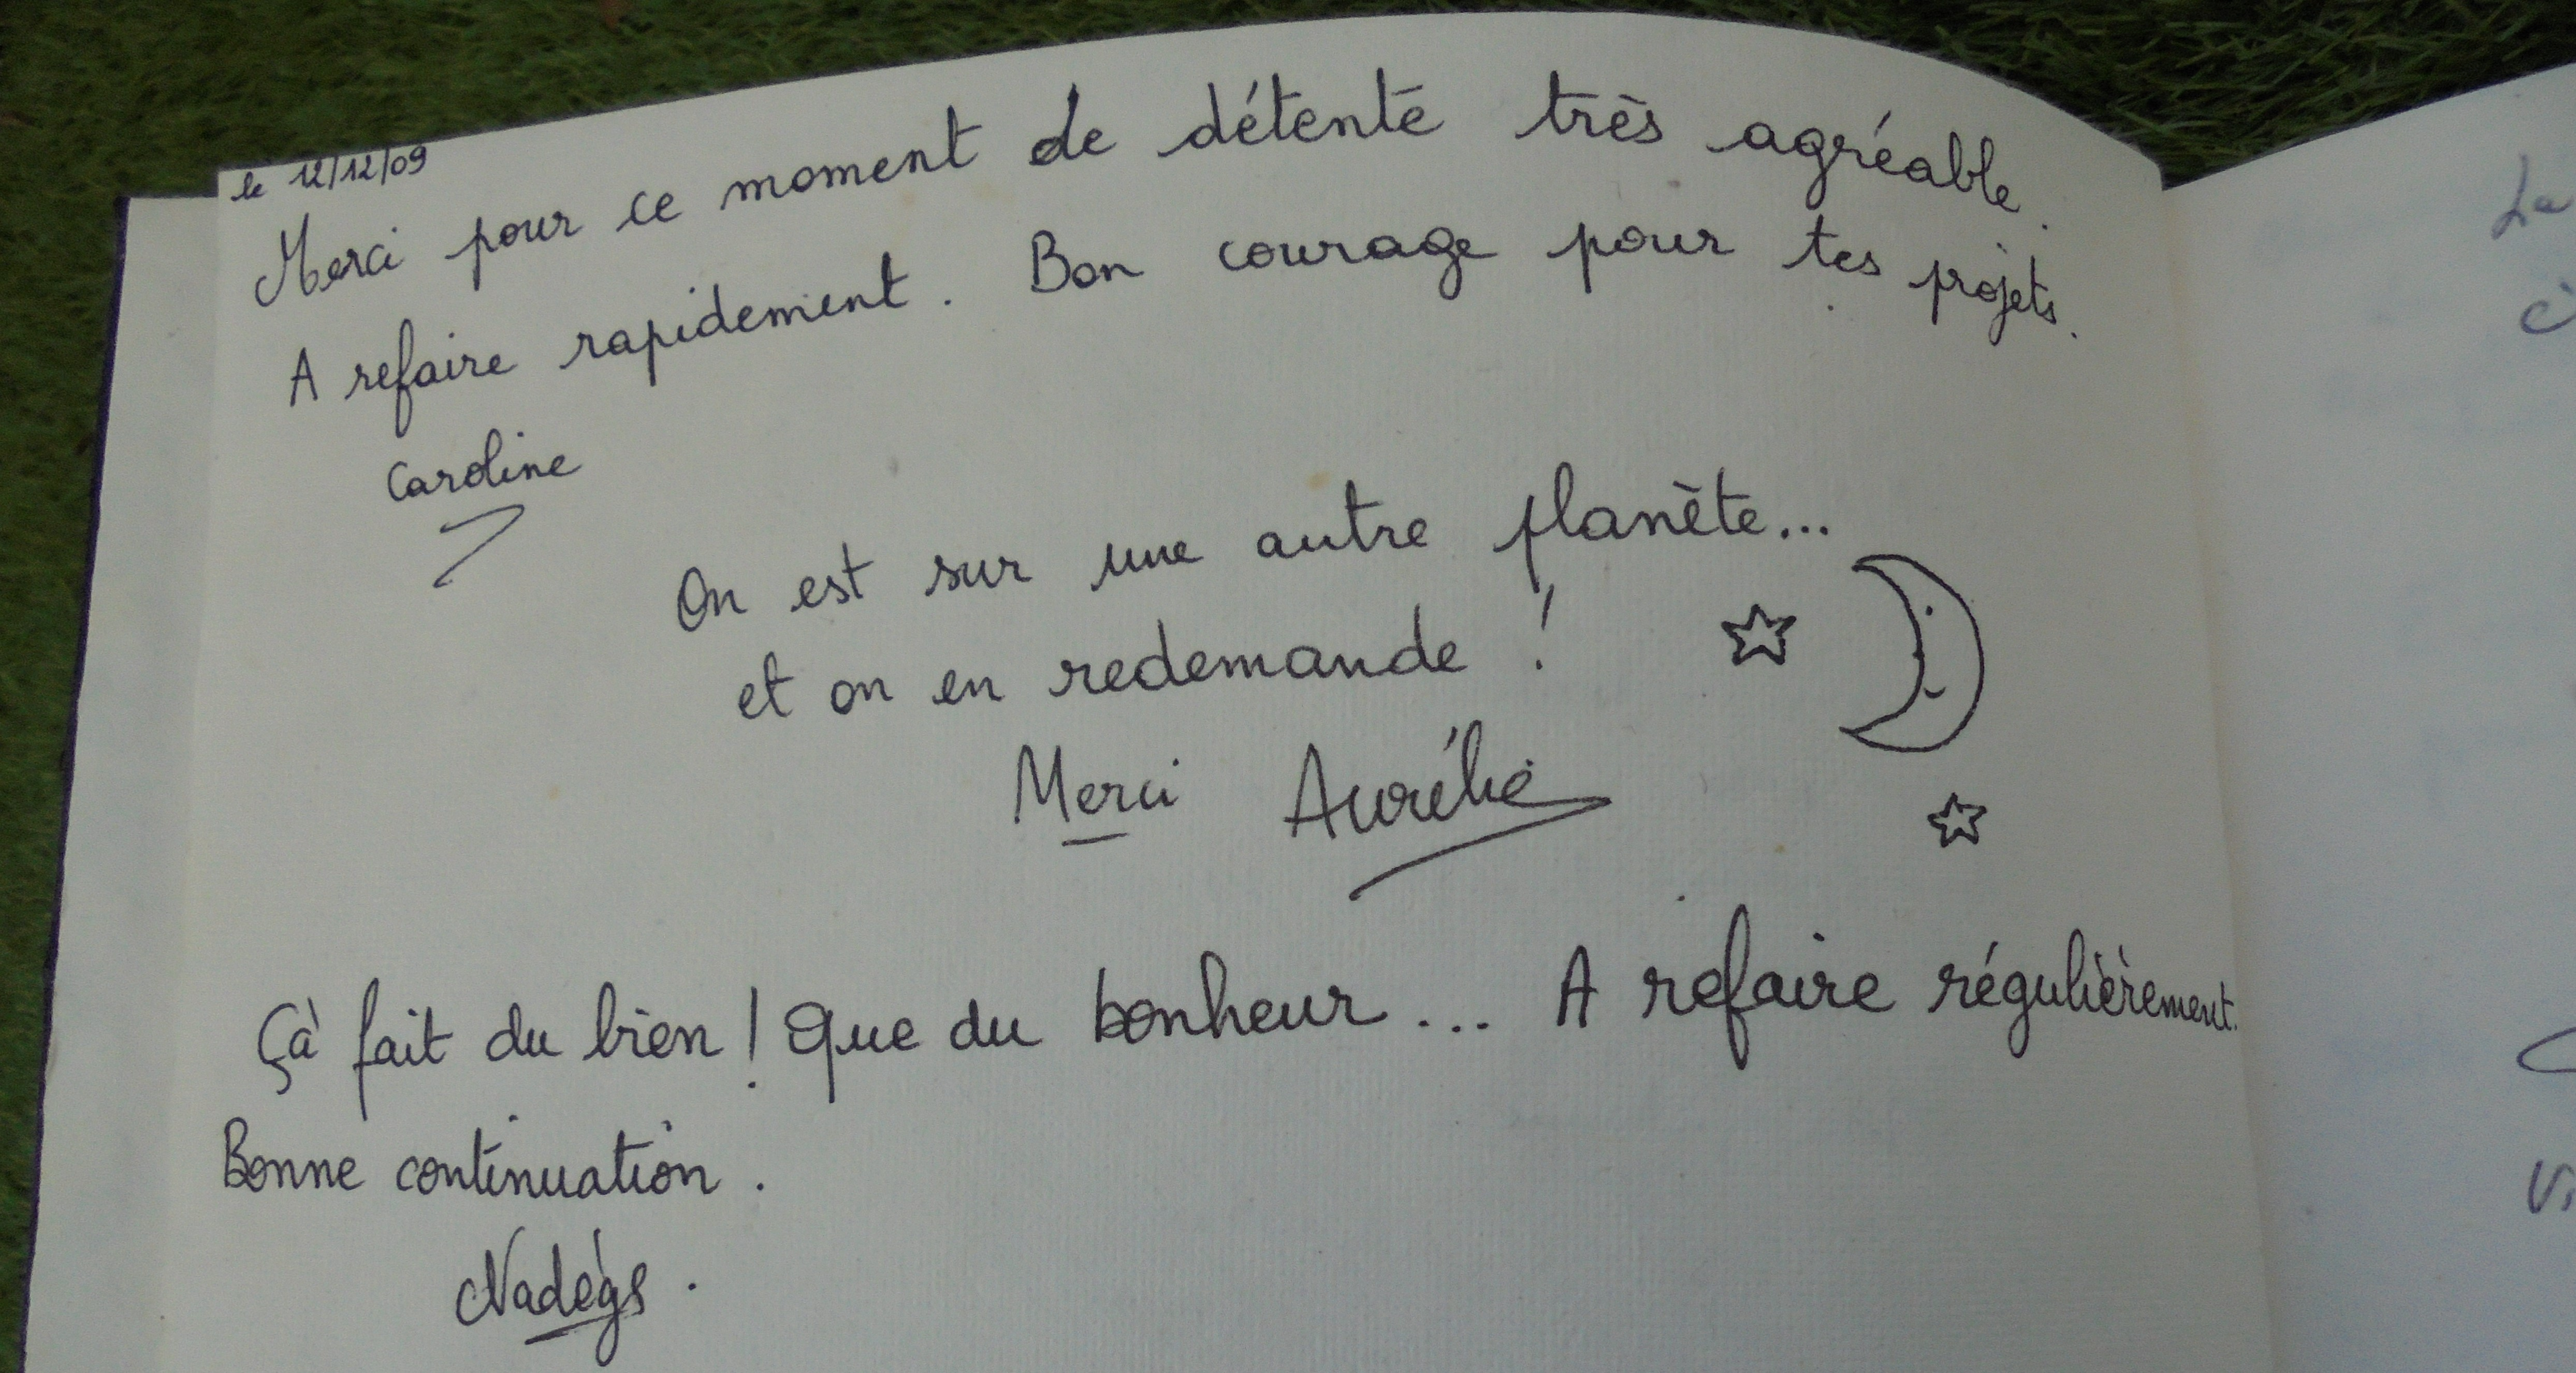 le 12/12/09
Merci pour ce moment de détente très agréable.
A refaire rapidement. Bon courage pour tes projets.
Caroline
On est sur une autre planète...
et on en redemande !
Merci Aurélie
Çà fait du bien ! Que du bonheur... A refaire régulièrement.
Bonne continuation.
Nadège.
La